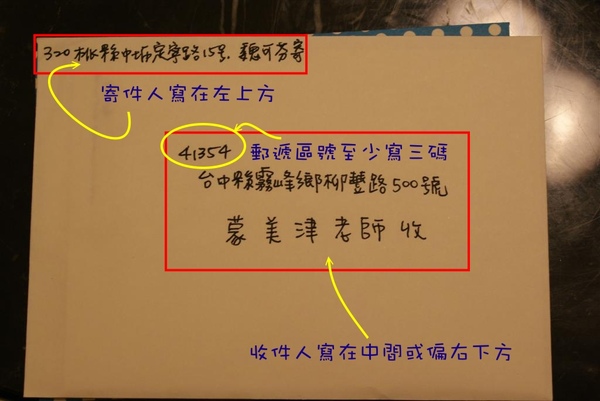 320 桃縣中坜定寧路15号. 魏可芬寄
寄件人寫在左上方
41354
郵遞區號至少寫三碼
台中縣霧峰鄉柳豐路500號
蒙美津老師收
收件人寫在中間或偏右下方